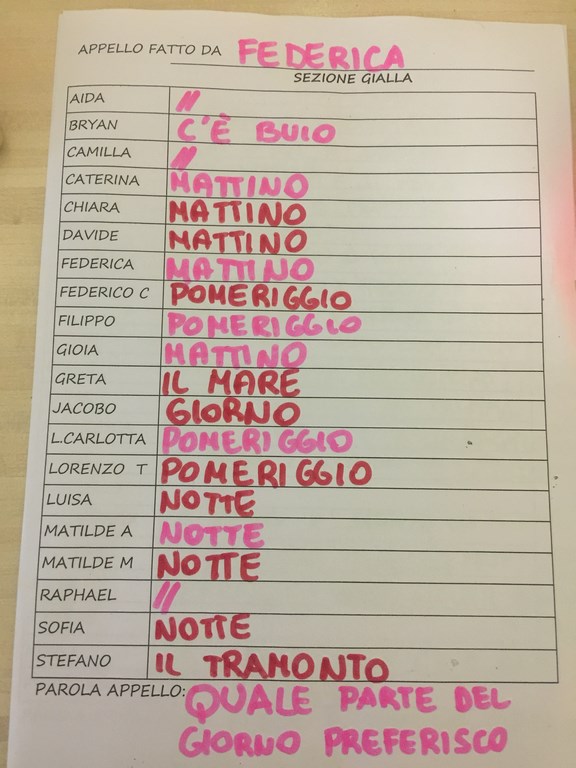 APPELLO FATTO DA FEDERICA
SEZIONE GIALLA
AIDA //
BRYAN C'È BUIO
CAMILLA //
CATERINA MATTINO
CHIARA MATTINO
DAVIDE MATTINO
FEDERICA MATTINO
FEDERICO C POMERIGGIO
FILIPPO POMERIGGIO
GIOIA MATTINO
GRETA IL MARE
JACOBO GIORNO
L.CARLOTTA POMERIGGIO
LORENZO T POMERIGGIO
LUISA NOTTE
MATILDE A NOTTE
MATILDE M NOTTE
RAPHAEL //
SOFIA NOTTE
STEFANO IL TRAMONTO
PAROLA APPELLO: QUALE PARTE DEL
GIORNO PREFERISCO